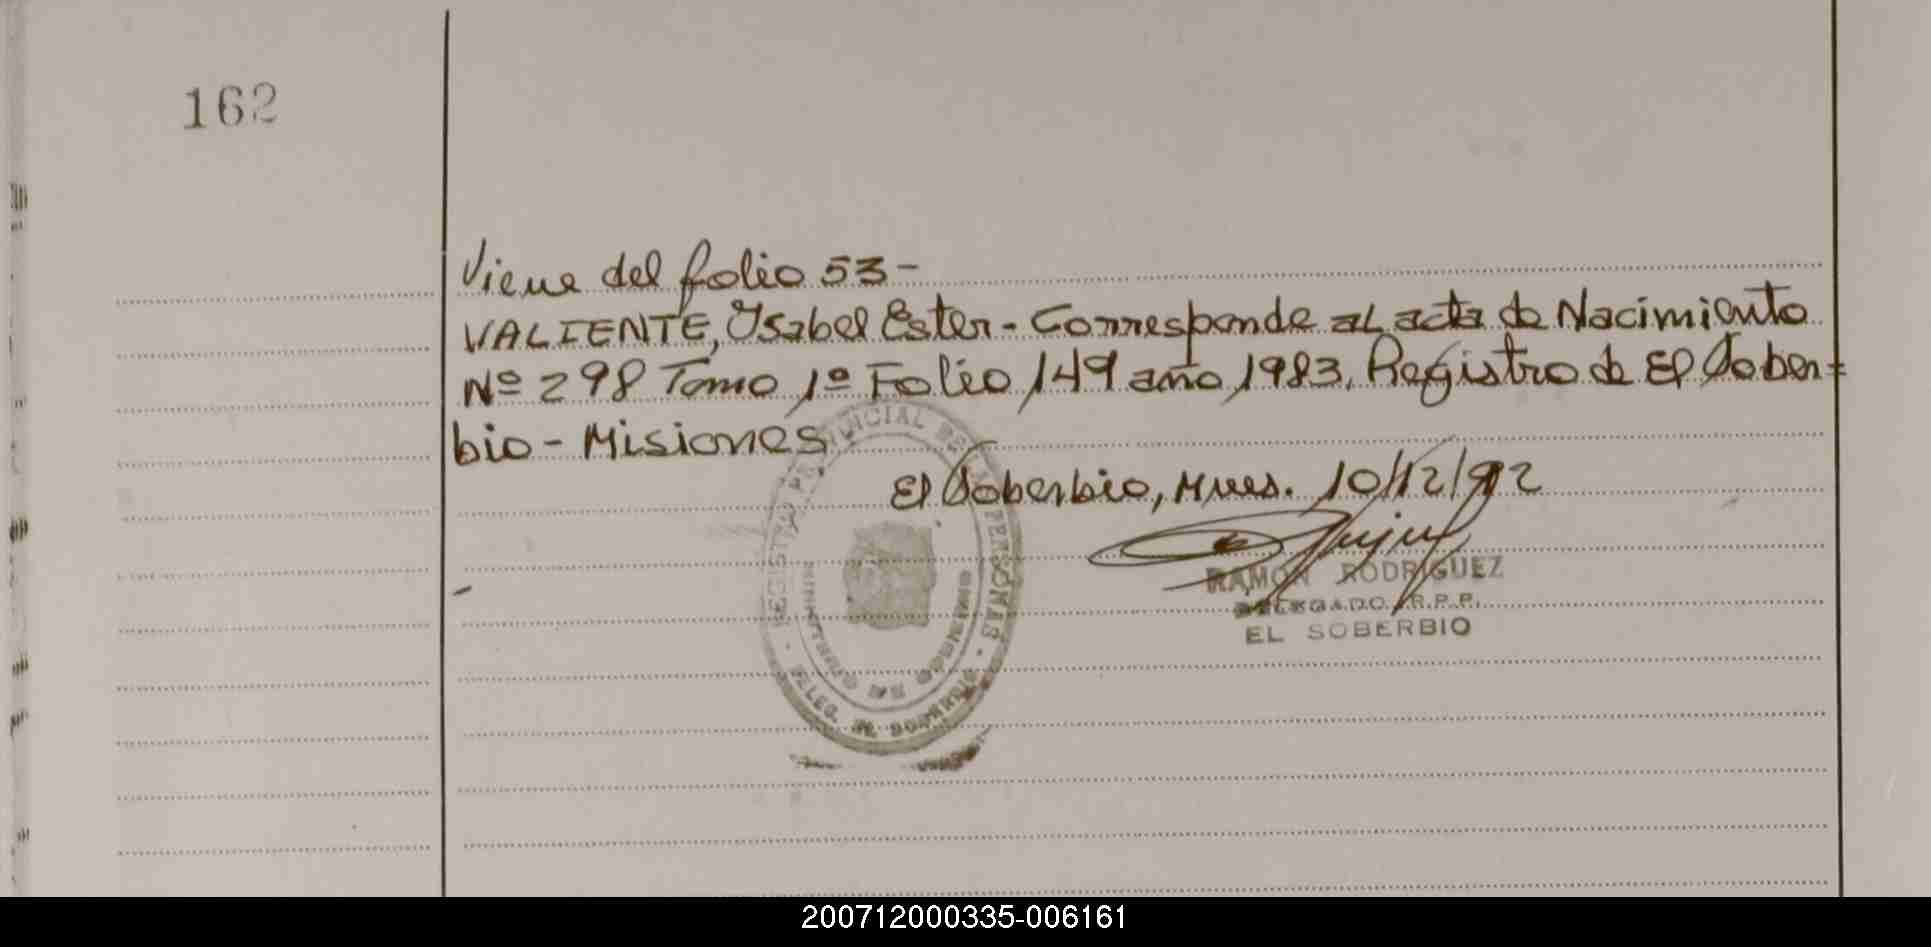 162
Viene del folio 53-
VALIENTE, Ysabel Ester - Corresponde al acta de Nacimiento
Nº 298 Tomo 1º Folio 149 año 1983. Registro de El Sober=
bio - Misiones
El Soberbio, Mnes. 10/12/92
REGISTRO PROVINCIAL DE LAS PERSONAS
DELEG. EL SOBERBIO
MINISTERIO DE GOBIERNO
RAMON RODRIGUEZ
DELEGADO R.P.P.
EL SOBERBIO
200712000335-006161